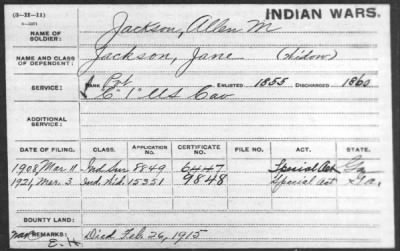 (3-II-11)
INDIAN WARS.
NAME OF SOLDIER: Jackson, Allen M
NAME AND CLASS OF DEPENDENT: Jackson, Jane (Widow)
SERVICE: Pvt ENLISTED 1855 DISCHARGED 1860
C "1" US Cav
ADDITIONAL SERVICE:
DATE OF FILING. CLASS. APPLICATION NO. CERTIFICATE NO. FILE NO. ACT. STATE.
1908, Mar. 11 Ind. Sur. 8849 6447 Special Act Ga.
1921, Mar. 3. Ind. Wid. 15351 9848 Special act Ga.
BOUNTY LAND:
REMARKS: Died Feb 26, 1915